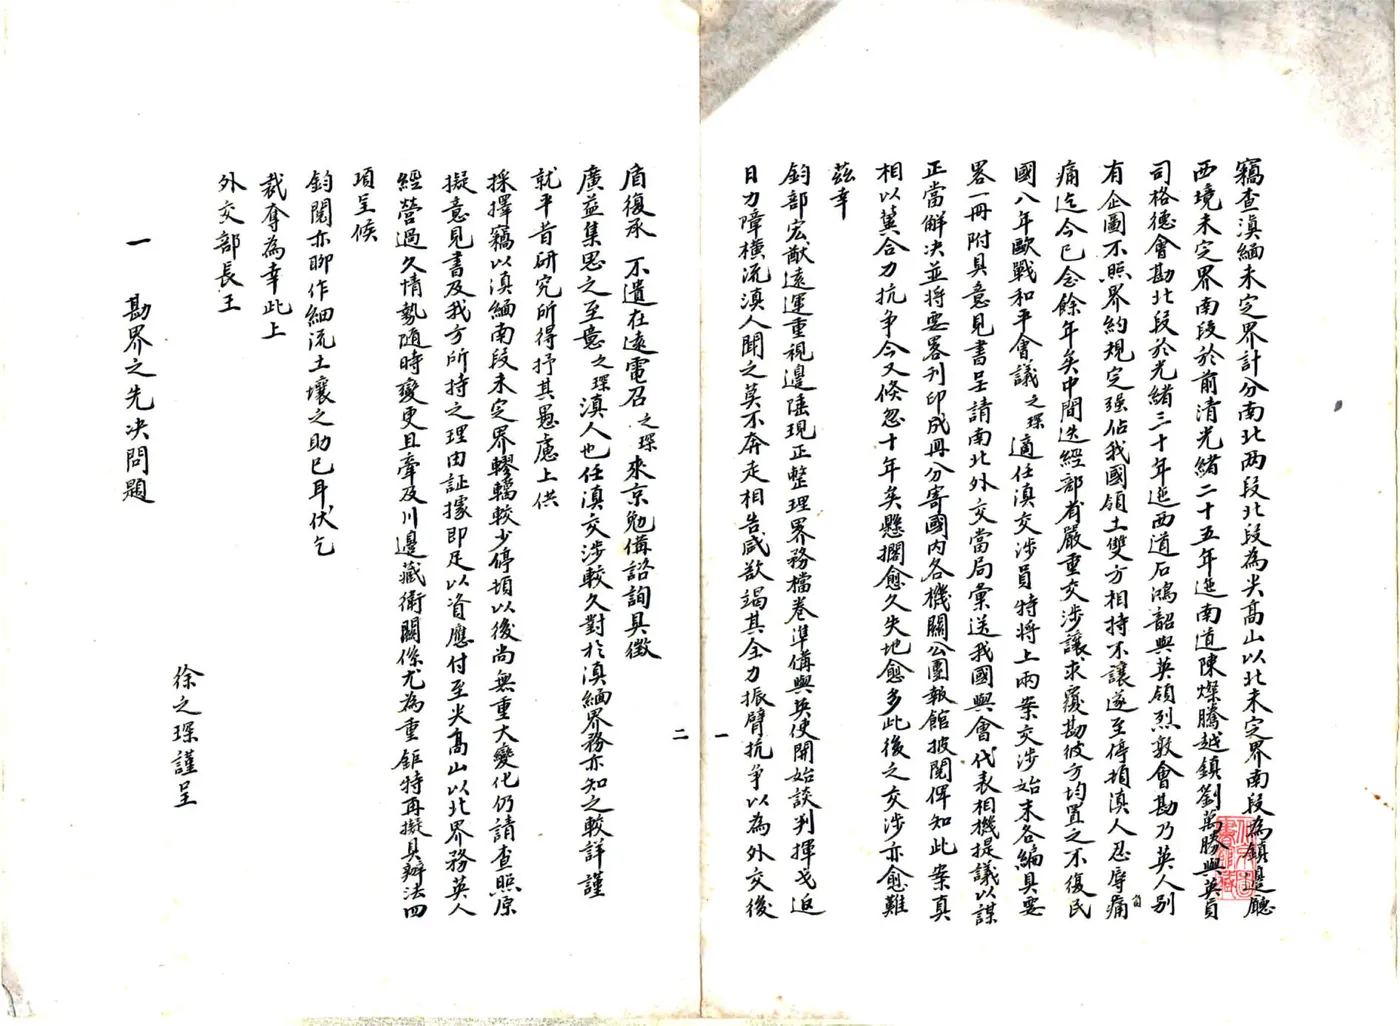 竊查滇緬未定界計分南北兩段北段為尖高山以北未定界南段為鎮邊廳
西境未定界南段於前清光緒二十五年迤南道陳燦騰越鎮劉萬勝與英員
司格德會勘北段於光緒三十年迤西道石鴻韶與英領烈敦會勘乃英人別
有企圖不照界約規定强佔我國領土雙方相持不讓遂至停頓滇人忍辱痛
痛迄今已念餘年矣中間迭經部省嚴重交涉讓求覆勘彼方均置之不復民
國八年歐戰和平會議之琛適任滇交涉員特將上兩案交涉始末各編具要
畧一冊附具意見書呈請南北外交當局彙送我國與會代表相機提議以謀
正當解决並將要畧刊印成冊分寄國内各機關公團報館披閱俾知此案真
相以冀合力抗争今又倏忽十年矣懸擱愈久失地愈多此後之交涉亦愈難
茲幸
鈞部宏猷遠運重視邊陲現正整理界務檔卷準備與英使開始談判揮戈返
日力障橫流滇人聞之莫不奔走相告咸欲竭其全力振臂抗争以為外交後
一
二
盾復承 不遺在遠電召之琛來京勉備諮詢具徵
廣益集思之至意之琛滇人也任滇交涉較久對於滇緬界務亦知之較詳謹
就平昔研究所得抒其愚慮上供
採擇竊以滇緬南段未定界轇轕較少停頓以後尚無重大變化仍請查照原
擬意見書及我方所持之理由証據即足以資應付至尖高山以北界務英人
經營過久情勢隨時變更且牽及川邊藏衛關係尤為重鉅特再擬具辦法四
項呈候
鈞閱亦聊作細流土壤之助已耳伏乞
裁奪為幸此上
外交部長王
徐之琛謹呈
一 勘界之先决問題